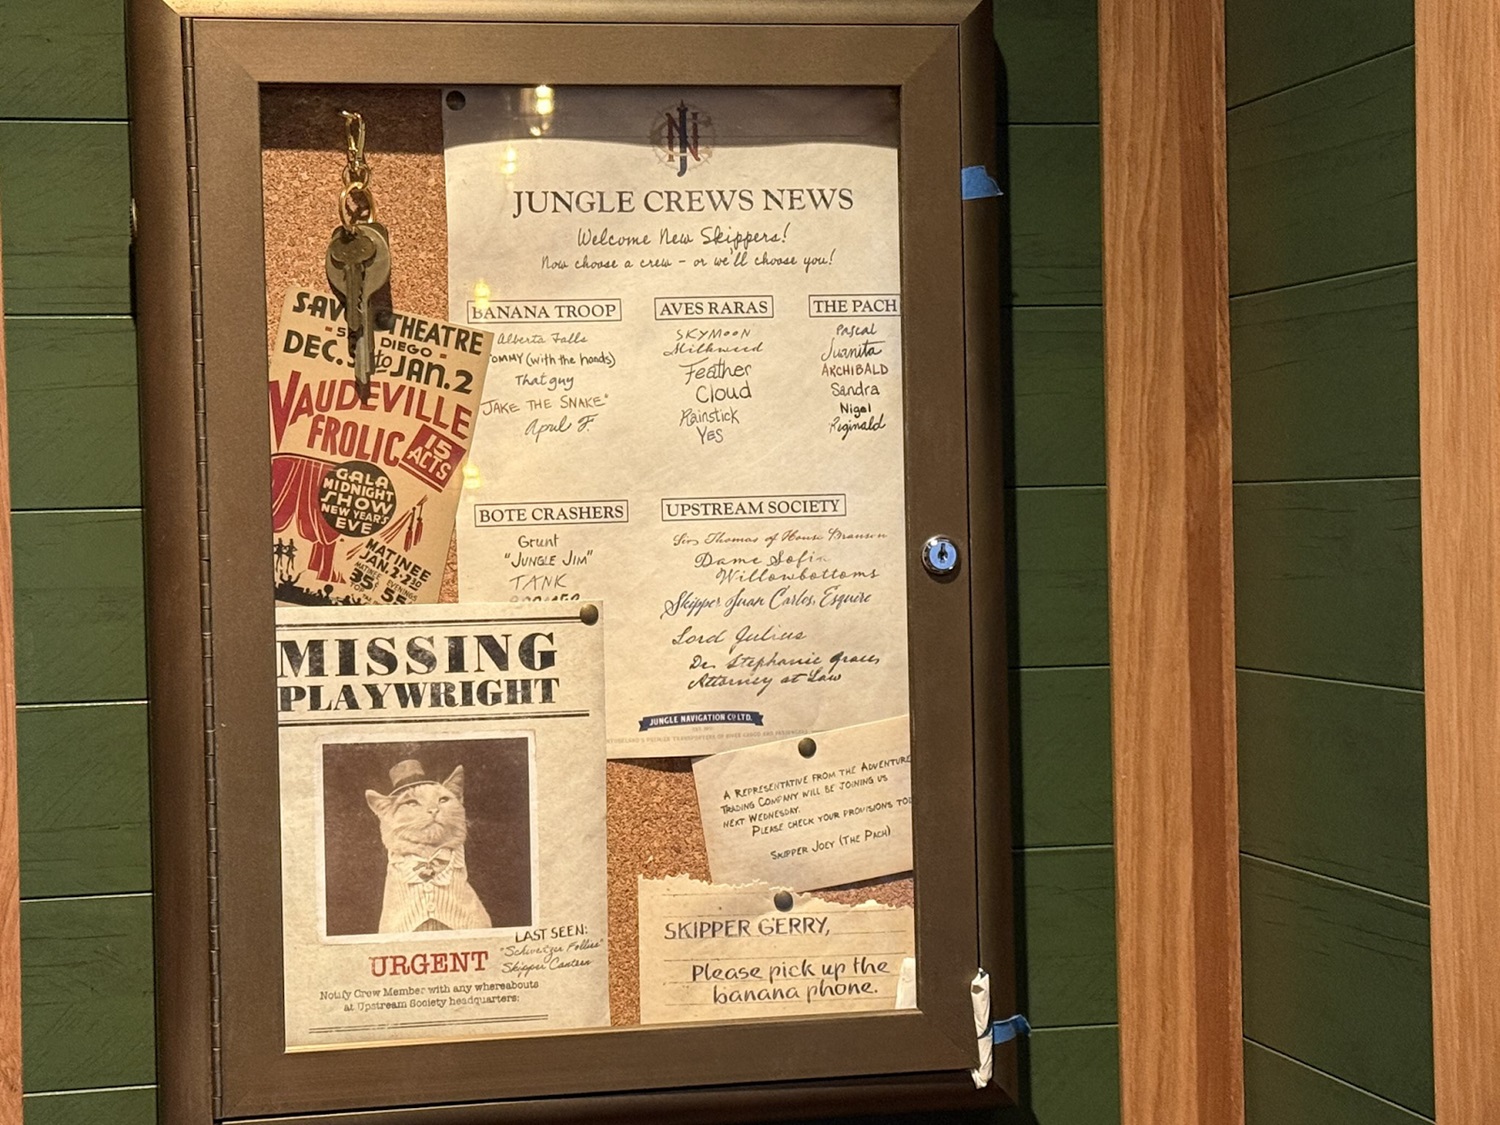 JNC
JUNGLE CREWS NEWS
Welcome New Skippers!
Now choose a crew - or we'll choose you!
BANANA TROOP
Alberta Falls
TOMMY (with the hands)
That guy
"JAKE THE SNAKE"
April F.
AVES RARAS
SKYMOON
Milkweed
Feather
Cloud
Rainstick
YES
THE PACH
Pascal
Juanita
ARCHIBALD
Sandra
Nigel
Reginald
BOTE CRASHERS
Grunt
"JUNGLE JIM"
TANK
UPSTREAM SOCIETY
Sir Thomas of House
Dame Sofia
Willowbottoms
Skipper Juan Carlos, Esquire
Lord Julius
Dr. Stephanie Graces
Attorney at Law
JUNGLE NAVIGATION CO. LTD.
THEATRE
DIEGO
DEC. to JAN. 2
VAUDEVILLE
FROLIC 15
ACTS
GALA
MIDNIGHT
SHOW
NEW YEAR'S
EVE
MATINEE
JAN. 2 - 2:30
MATINEE EVENINGS
35¢ 55
MISSING
PLAYWRIGHT
LAST SEEN:
"Schweitzer Follies"
Skipper Canteen
URGENT
Notify Crew Member with any whereabouts
at Upstream Society headquarters.
A REPRESENTATIVE FROM THE ADVENTURE
TRADING COMPANY WILL BE JOINING US
NEXT WEDNESDAY.
PLEASE CHECK YOUR PROVISIONS
SKIPPER JOEY (THE PACH)
SKIPPER GERRY,
Please pick up the
banana phone.